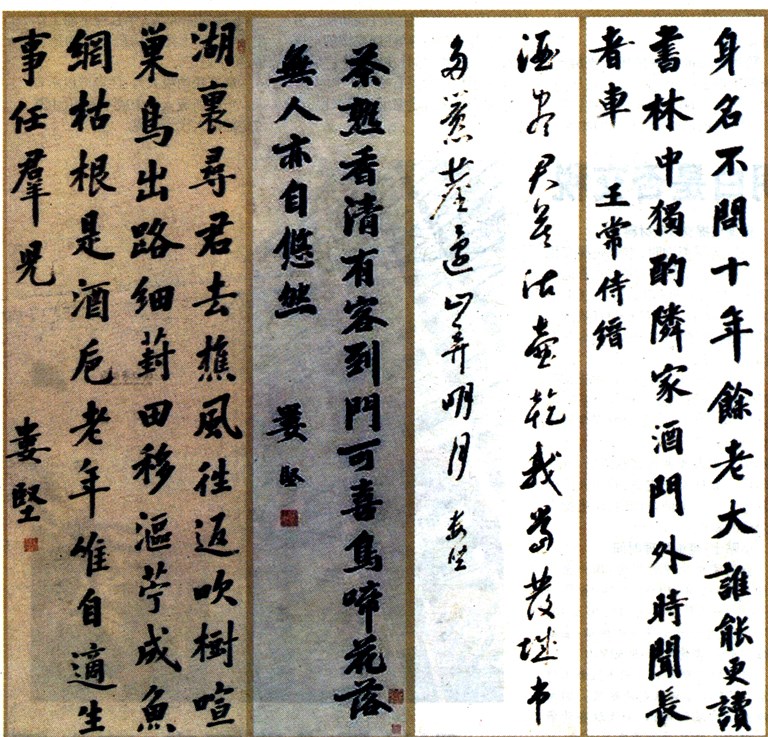 身名不問十年餘老大誰能更讀
書林中獨酌隣家酒門外時聞長
者車
王常侍縉
酒盡君莫沽壺乾我當發城市
多囂塵還山弄明月
茶熟香清有客到門可喜鳥啼花落
無人亦自悠然
婁堅
湖裏尋君去樵風往返吹樹喧
巢鳥出路細葑田移漚苧成魚
網枯根是酒巵老年唯自適生
事任羣兒
婁堅